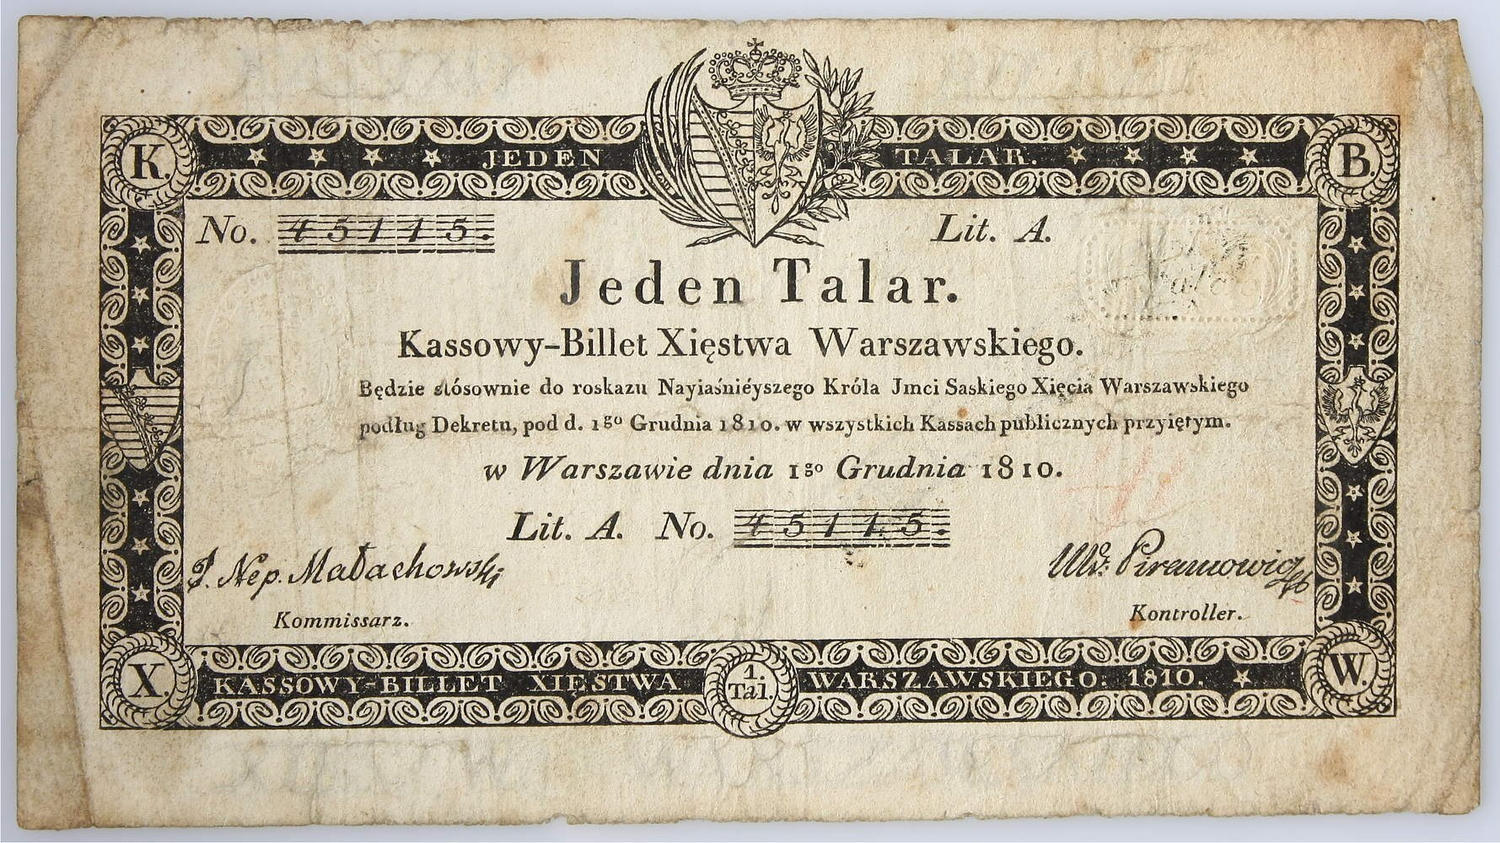 K. JEDEN TALAR. B.
No. 45115. Lit. A.
Jeden Talar.
Kassowy-Billet Xięstwa Warszawskiego.
Będzie stósownie do roskazu Nayiaśniéyszego Króla Jmci Saskiego Xięcia Warszawskiego
podług Dekretu, pod d. 1go Grudnia 1810. w wszystkich Kassach publicznych przyiętym.
w Warszawie dnia 1go Grudnia 1810.
Lit. A. No. 45115.
J. Nep. Małachowski
Piramowicz
Kommissarz. Kontroller.
X. KASSOWY-BILLET XIĘSTWA 1. Tal. WARSZAWSKIEGO. 1810. W.